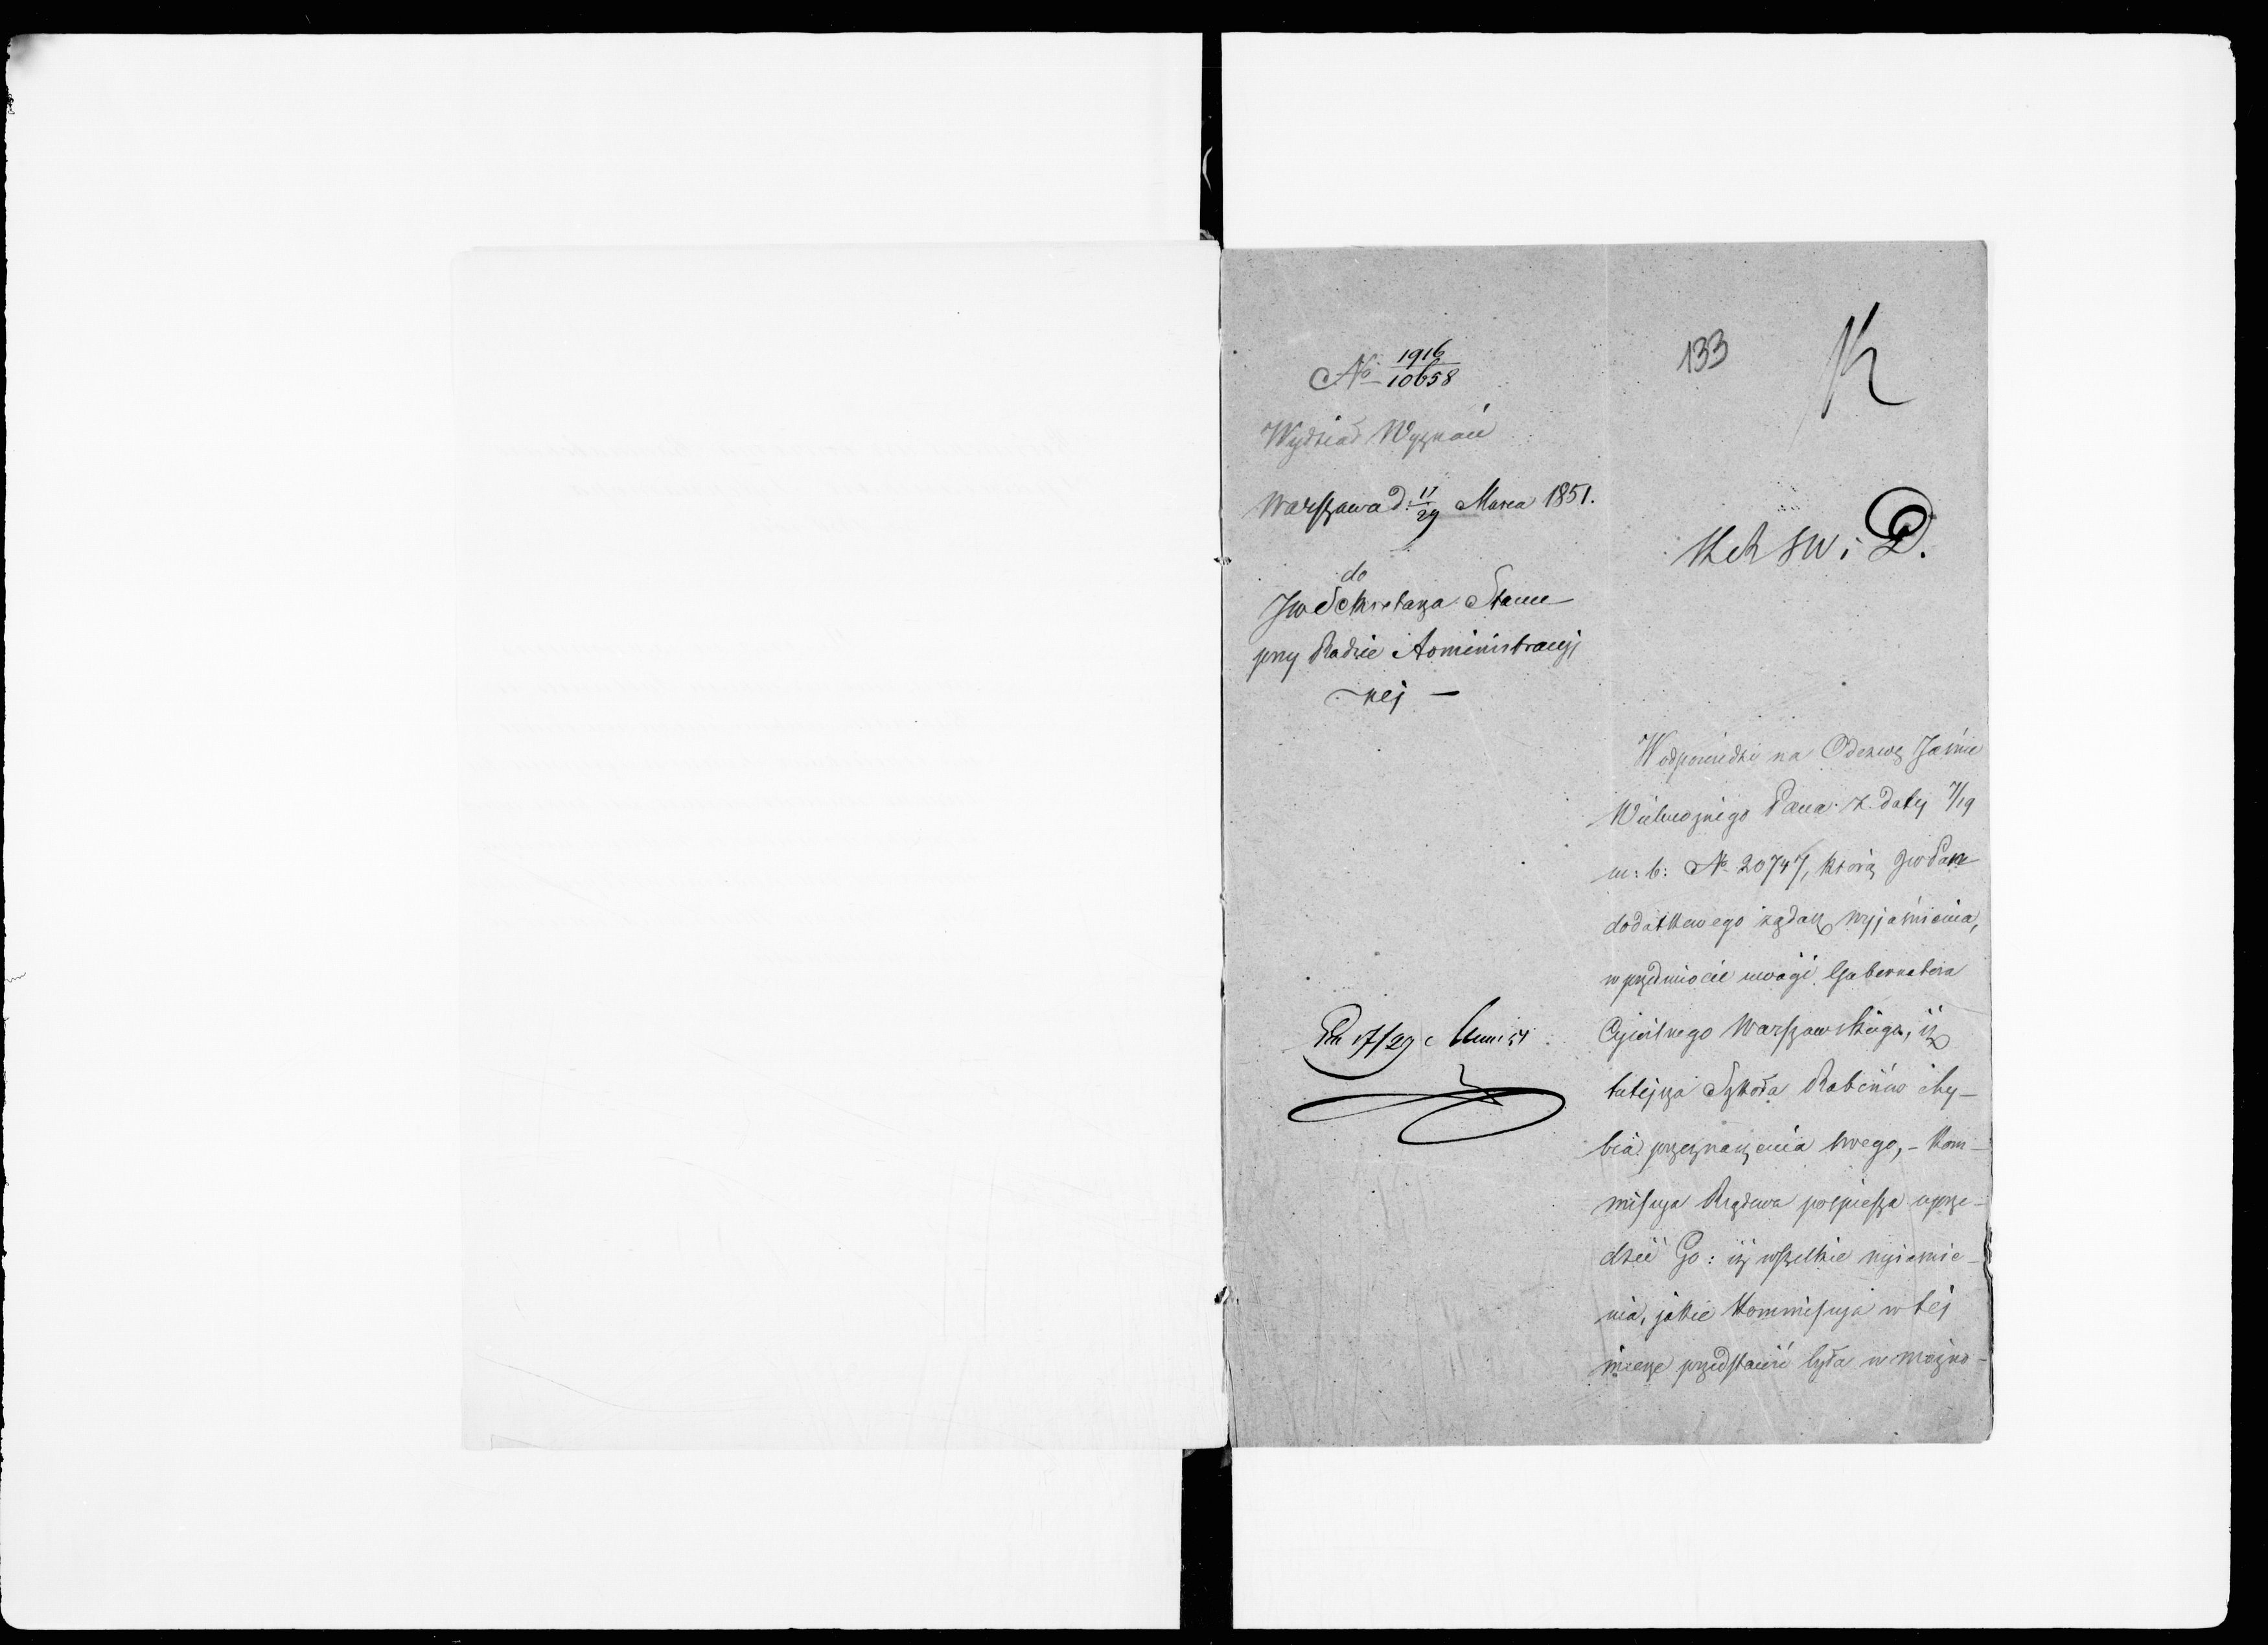 No 1916/10658
133
K
Wydział Wyznań
Warszawa d. 17/29 Marca 1851.
do
JW Sekretarza Stanu
przy Radzie Administracyj
nej —
W odpowiedzi na Odezwę Jaśnie
Wielmożnego Pana z daty 7/19
m: b: No 20747, którą JW Pan
dodatkowego żądasz wyjaśnienia,
w przedmiocie uwagi Gubernatora
Cywilnego Warszawskiego, iż
tutejsza Szkoła Rabinów chy-
bia przeznaczenia swego, - Kom-
missya Rządowa pospiesza uprze-
dzić Go: iż wszelkie wyjaśnie-
nia, jakie Kommissyja w tej
mierze przedstawić była w możno-
17/29